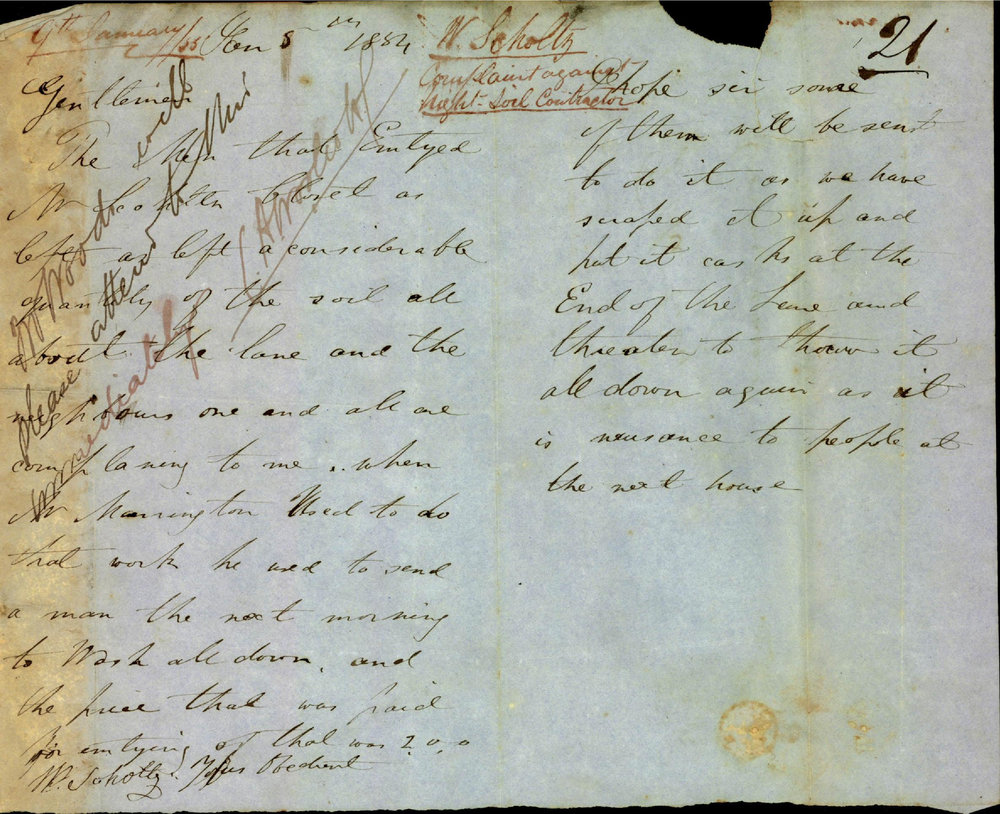 9th January/55
Jan 5 1854
W. Scholtz
Complaint against
Night-Soil Contractor
21
Gentlemen
The Men that Emtyed
Mr Closet as
left as left a considerable
quantity of the soil all
about the lane and the
neighbours one and all are
complaning to me. when
Mr Mannington Used to do
that work he used to send
a man the next morning
to Wash all down, and
the price that was paid
for emtying of that was 2.0.0
W. Scholtz. Yous Obedient
I hope sir some
of them will be sent
to do it as we have
scraped it up and
put it casks at the
End of the Lane and
threaten to thown it
all down again as it
is neusance to people at
the next house
Mr Woods will
please attend to this
immediately